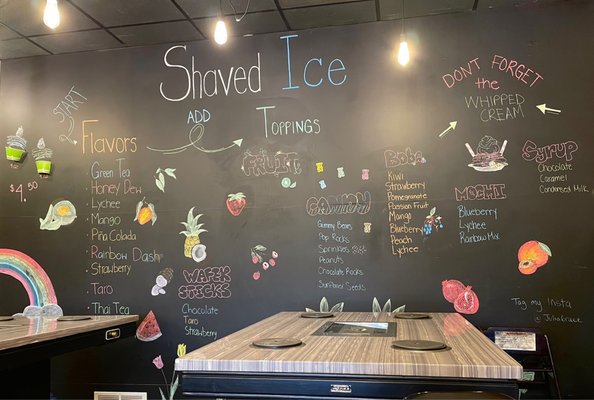 Shaved Ice
START
$4.50
Flavors
Green Tea
Honey Dew
Lychee
Mango
Piña Colada
Rainbow Dash
Strawberry
Taro
Thai Tea
ADD
Toppings
FRUIT
WAFER STICKS
Chocolate
Taro
Strawberry
Gummy Bears
Pop Rocks
Sprinkles
Peanuts
Chocolate Rocks
Sunflower Seeds
Boba
Kiwi
Strawberry
Pomegranate
Passion Fruit
Mango
Blueberry
Peach
Lychee
DON'T FORGET
the
WHIPPED
CREAM
MOCHI
Blueberry
Lychee
Rainbow Mix
SYRUP
Chocolate
Caramel
Condensed Milk
Tag my Insta